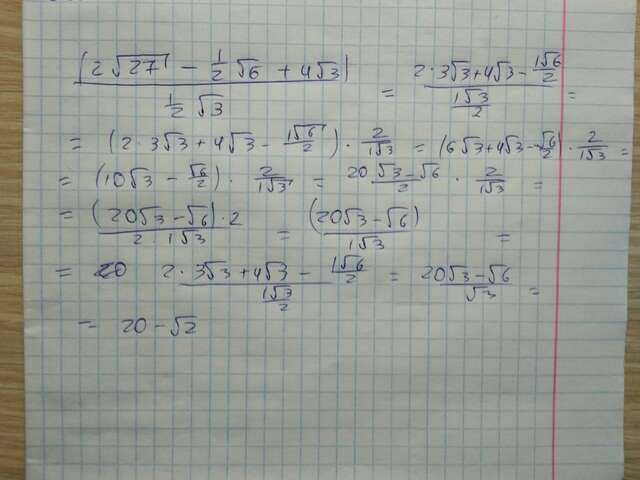 (2√27 - 1/2 √6 + 4√3) / (1/2 √3) = (2·3√3+4√3 - 1√6/2) / (1√3/2) =
= (2·3√3+4√3 - 1√6/2) · 2/1√3 = (6√3+4√3-√6/2) · 2/1√3 =
= (10√3 - √6/2) · 2/1√3 = 20√3-√6/2 · 2/1√3 =
= (20√3-√6)·2 / 2·1√3 = (20√3-√6) / 1√3 =
= 20 2·3√3+4√3 - 1√6/2 / 1√3/2 = 20√3-√6 / √3 =
= 20-√2